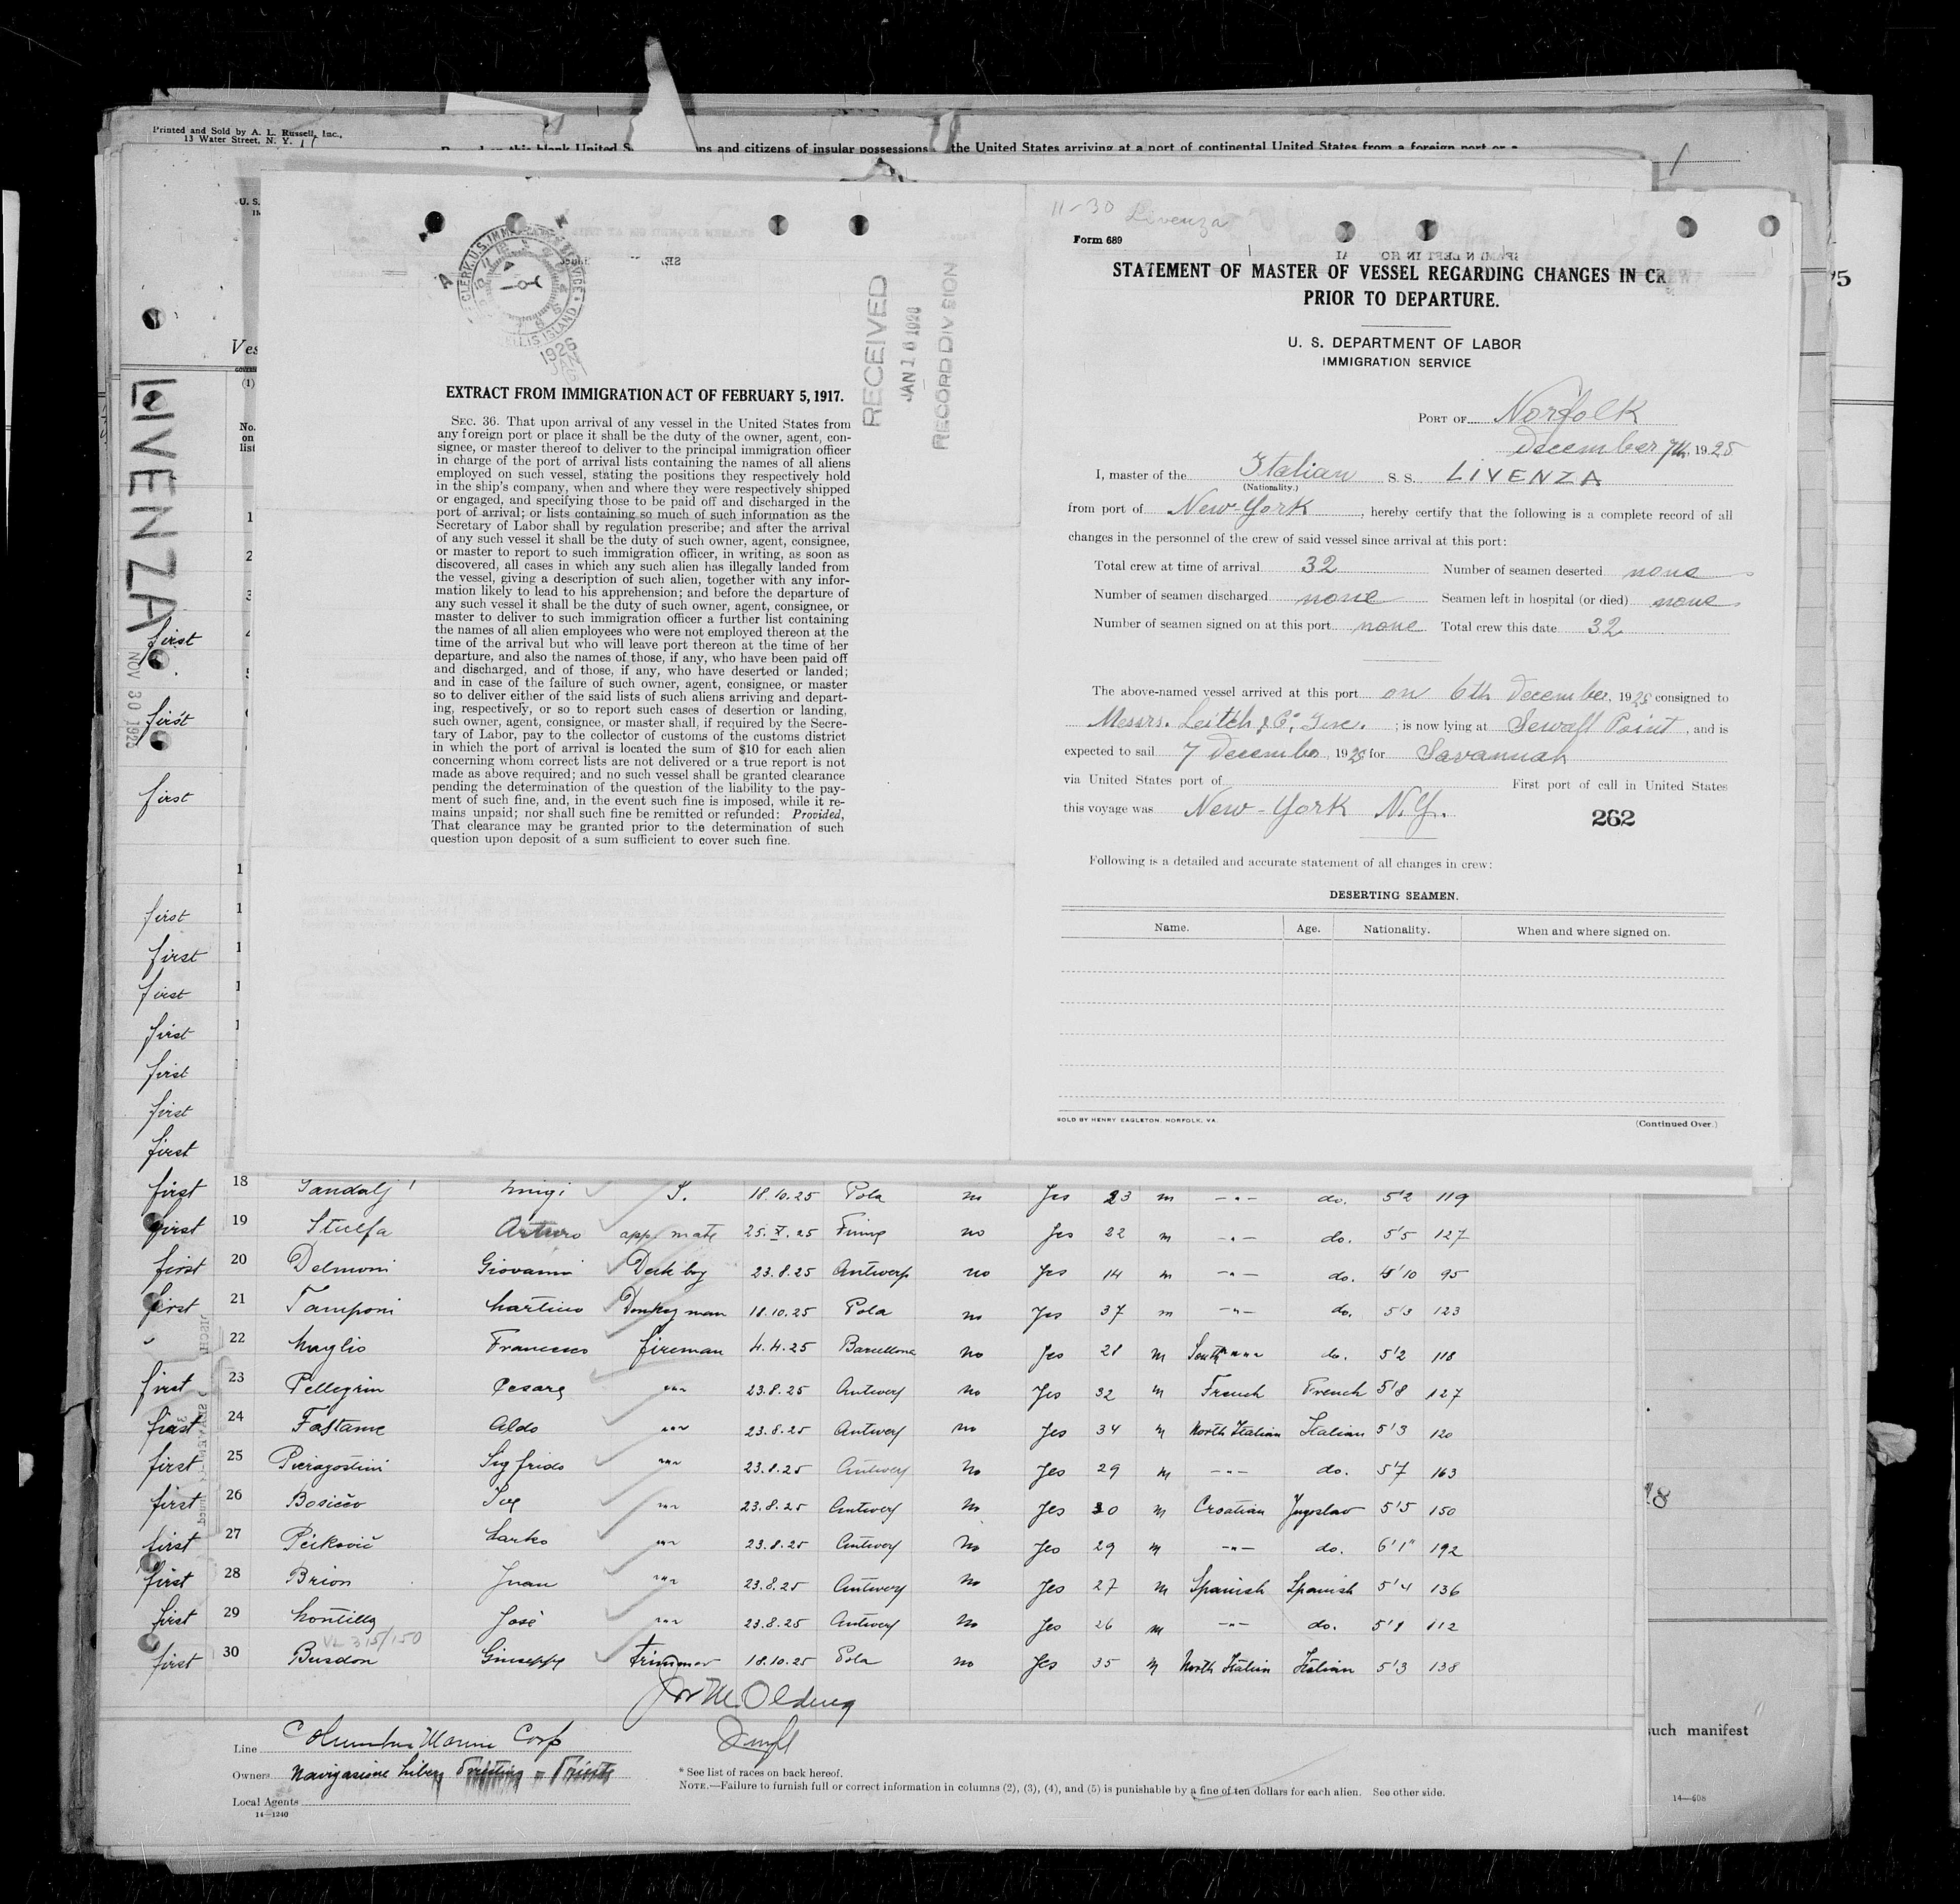 Printed and Sold by A. L. Russell, Inc.,
13 Water Street, N. Y.
and citizens of insular possessions the United States arriving at a port of continental United States from a foreign port or a
LIVENZA
NOV 30 1925
CLERK, U.S. IMMIGRATION SERVICE
ELLIS ISLAND
1926
RECEIVED
JAN 16 1926
RECORD DIVISION
EXTRACT FROM IMMIGRATION ACT OF FEBRUARY 5, 1917.
SEC. 36. That upon arrival of any vessel in the United States from
any foreign port or place it shall be the duty of the owner, agent, con-
signee, or master thereof to deliver to the principal immigration officer
in charge of the port of arrival lists containing the names of all aliens
employed on such vessel, stating the positions they respectively hold
in the ship's company, when and where they were respectively shipped
or engaged, and specifying those to be paid off and discharged in the
port of arrival; or lists containing so much of such information as the
Secretary of Labor shall by regulation prescribe; and after the arrival
of any such vessel it shall be the duty of such owner, agent, consignee,
or master to report to such immigration officer, in writing, as soon as
discovered, all cases in which any such alien has illegally landed from
the vessel, giving a description of such alien, together with any infor-
mation likely to lead to his apprehension; and before the departure of
any such vessel it shall be the duty of such owner, agent, consignee, or
master to deliver to such immigration officer a further list containing
the names of all alien employees who were not employed thereon at the
time of the arrival but who will leave port thereon at the time of her
departure, and also the names of those, if any, who have been paid off
and discharged, and of those, if any, who have deserted or landed;
and in case of the failure of such owner, agent, consignee, or master
so to deliver either of the said lists of such aliens arriving and depart-
ing, respectively, or so to report such cases of desertion or landing,
such owner, agent, consignee, or master shall, if required by the Secre-
tary of Labor, pay to the collector of customs of the customs district
in which the port of arrival is located the sum of $10 for each alien
concerning whom correct lists are not delivered or a true report is not
made as above required; and no such vessel shall be granted clearance
pending the determination of the question of the liability to the pay-
ment of such fine, and, in the event such fine is imposed, while it re-
mains unpaid; nor shall such fine be remitted or refunded: Provided,
That clearance may be granted prior to the determination of such
question upon deposit of a sum sufficient to cover such fine.
11-30 Livenza
Form 689
STATEMENT OF MASTER OF VESSEL REGARDING CHANGES IN CREW
PRIOR TO DEPARTURE.
U. S. DEPARTMENT OF LABOR
IMMIGRATION SERVICE
PORT OF Norfolk
December 7th, 1925
I, master of the Italian S. S. LIVENZA
(Nationality.)
from port of New York, hereby certify that the following is a complete record of all
changes in the personnel of the crew of said vessel since arrival at this port:
Total crew at time of arrival 32 Number of seamen deserted none
Number of seamen discharged none Seamen left in hospital (or died) none
Number of seamen signed on at this port none Total crew this date 32
The above-named vessel arrived at this port on 6th December, 1925 consigned to
Messrs. Leitch & Co; Inc. ; is now lying at Sewall Point, and is
expected to sail 7 December, 1925 for Savannah
via United States port of First port of call in United States
this voyage was New-York N.Y.
262
Following is a detailed and accurate statement of all changes in crew:
DESERTING SEAMEN.
Name. Age. Nationality. When and where signed on.
SOLD BY HENRY EAGLETON, NORFOLK, VA. (Continued Over.)
first
first
first
first
first
first
first
first
first
first
first 18 Luigi S. 18.10.25 Pola no Yes 23 m -"- do. 5'2 119
first 19 Stulfa Arturo app. mate 25.X.25 Fiume no Yes 22 m -"- do. 5'5 127
first 20 Delmoni Giovanni Deck boy 23.8.25 Antwerp no Yes 14 m -"- do. 4'10 95
first 21 Tamponi Martino Donkeyman 18.10.25 Pola no Yes 37 m -"- do. 5'3 123
" 22 Muglio Francesco fireman 4.4.25 Barcellona no Yes 28 m South """ do. 5'2 118
first 23 Pellegrin Cesare """ 23.8.25 Antwerp no Yes 32 m French French 5'8 127
first 24 Aldo """ 23.8.25 Antwerp no Yes 34 m North Italian Italian 5'3 120
first 25 Pieragostini Sigfrido """ 23.8.25 Antwerp No Yes 29 m -"- do. 5'7 163
first 26 """ 23.8.25 Antwerp No Yes 30 m Croatian Jugoslav 5'5 150
first 27 Marko """ 23.8.25 Antwerp No Yes 29 m -"- do. 6'1" 192
first 28 Brion Juan """ 23.8.25 Antwerp No Yes 27 m Spanish Spanish 5'4 136
first 29 Montilla José """ 23.8.25 Antwerp No Yes 26 m -"- do. 5'1 112
VL 315/150
first 30 Busdon Giuseppe trimmer 18.10.25 Pola no Yes 35 m North Italian Italian 5'3 138
Line Columbus Marine Corp
Owners Navigazione Libera Triestina = Trieste
Local Agents
14-1240
* See list of races on back hereof.
NOTE.—Failure to furnish full or correct information in columns (2), (3), (4), and (5) is punishable by a fine of ten dollars for each alien. See other side.
such manifest
14-608